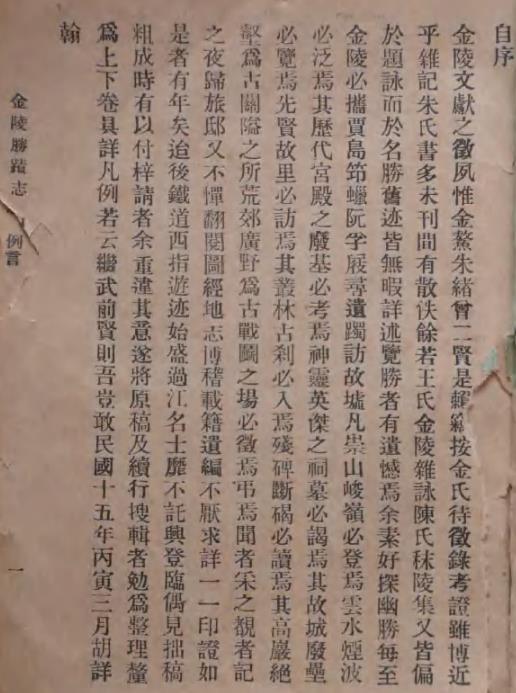 自序
金陵文獻之徵夙惟金鰲朱緒曾二賢是按金氏待徵錄考證雖博近
乎雜記朱氏書多未刊間有散佚餘若王氏金陵雜詠陳氏秣陵集又皆偏
於題詠而於名勝舊迹皆無暇詳述覽勝者有遺憾焉余素好探幽勝每至
金陵必攜賈島笻蠟阮孚屐尋遺躅訪故墟凡崇山峻嶺必登焉雲水煙波
必泛焉其歷代宮殿之廢基必考焉神靈英傑之祠墓必謁焉其故城廢壘
必覽焉先賢故里必訪焉其叢林古刹必入焉殘碑斷碣必讀焉其高巖絕
壑爲古關隘之所荒郊廣野爲古戰鬭之場必徵焉弔焉聞者采之覩者記
之夜歸旅邸又不憚翻閱圖經地志博稽載籍遺編不厭求詳一一印證如
是者有年矣迨後鐵道西指遊迹始盛過江名士靡不託興登臨偶見拙稿
粗成時有以付梓請者余重違其意遂將原稿及續行搜輯者勉爲整理釐
爲上下卷具詳凡例若云繼武前賢則吾豈敢民國十五年丙寅三月胡詳
翰
金陵勝蹟志 例言 一